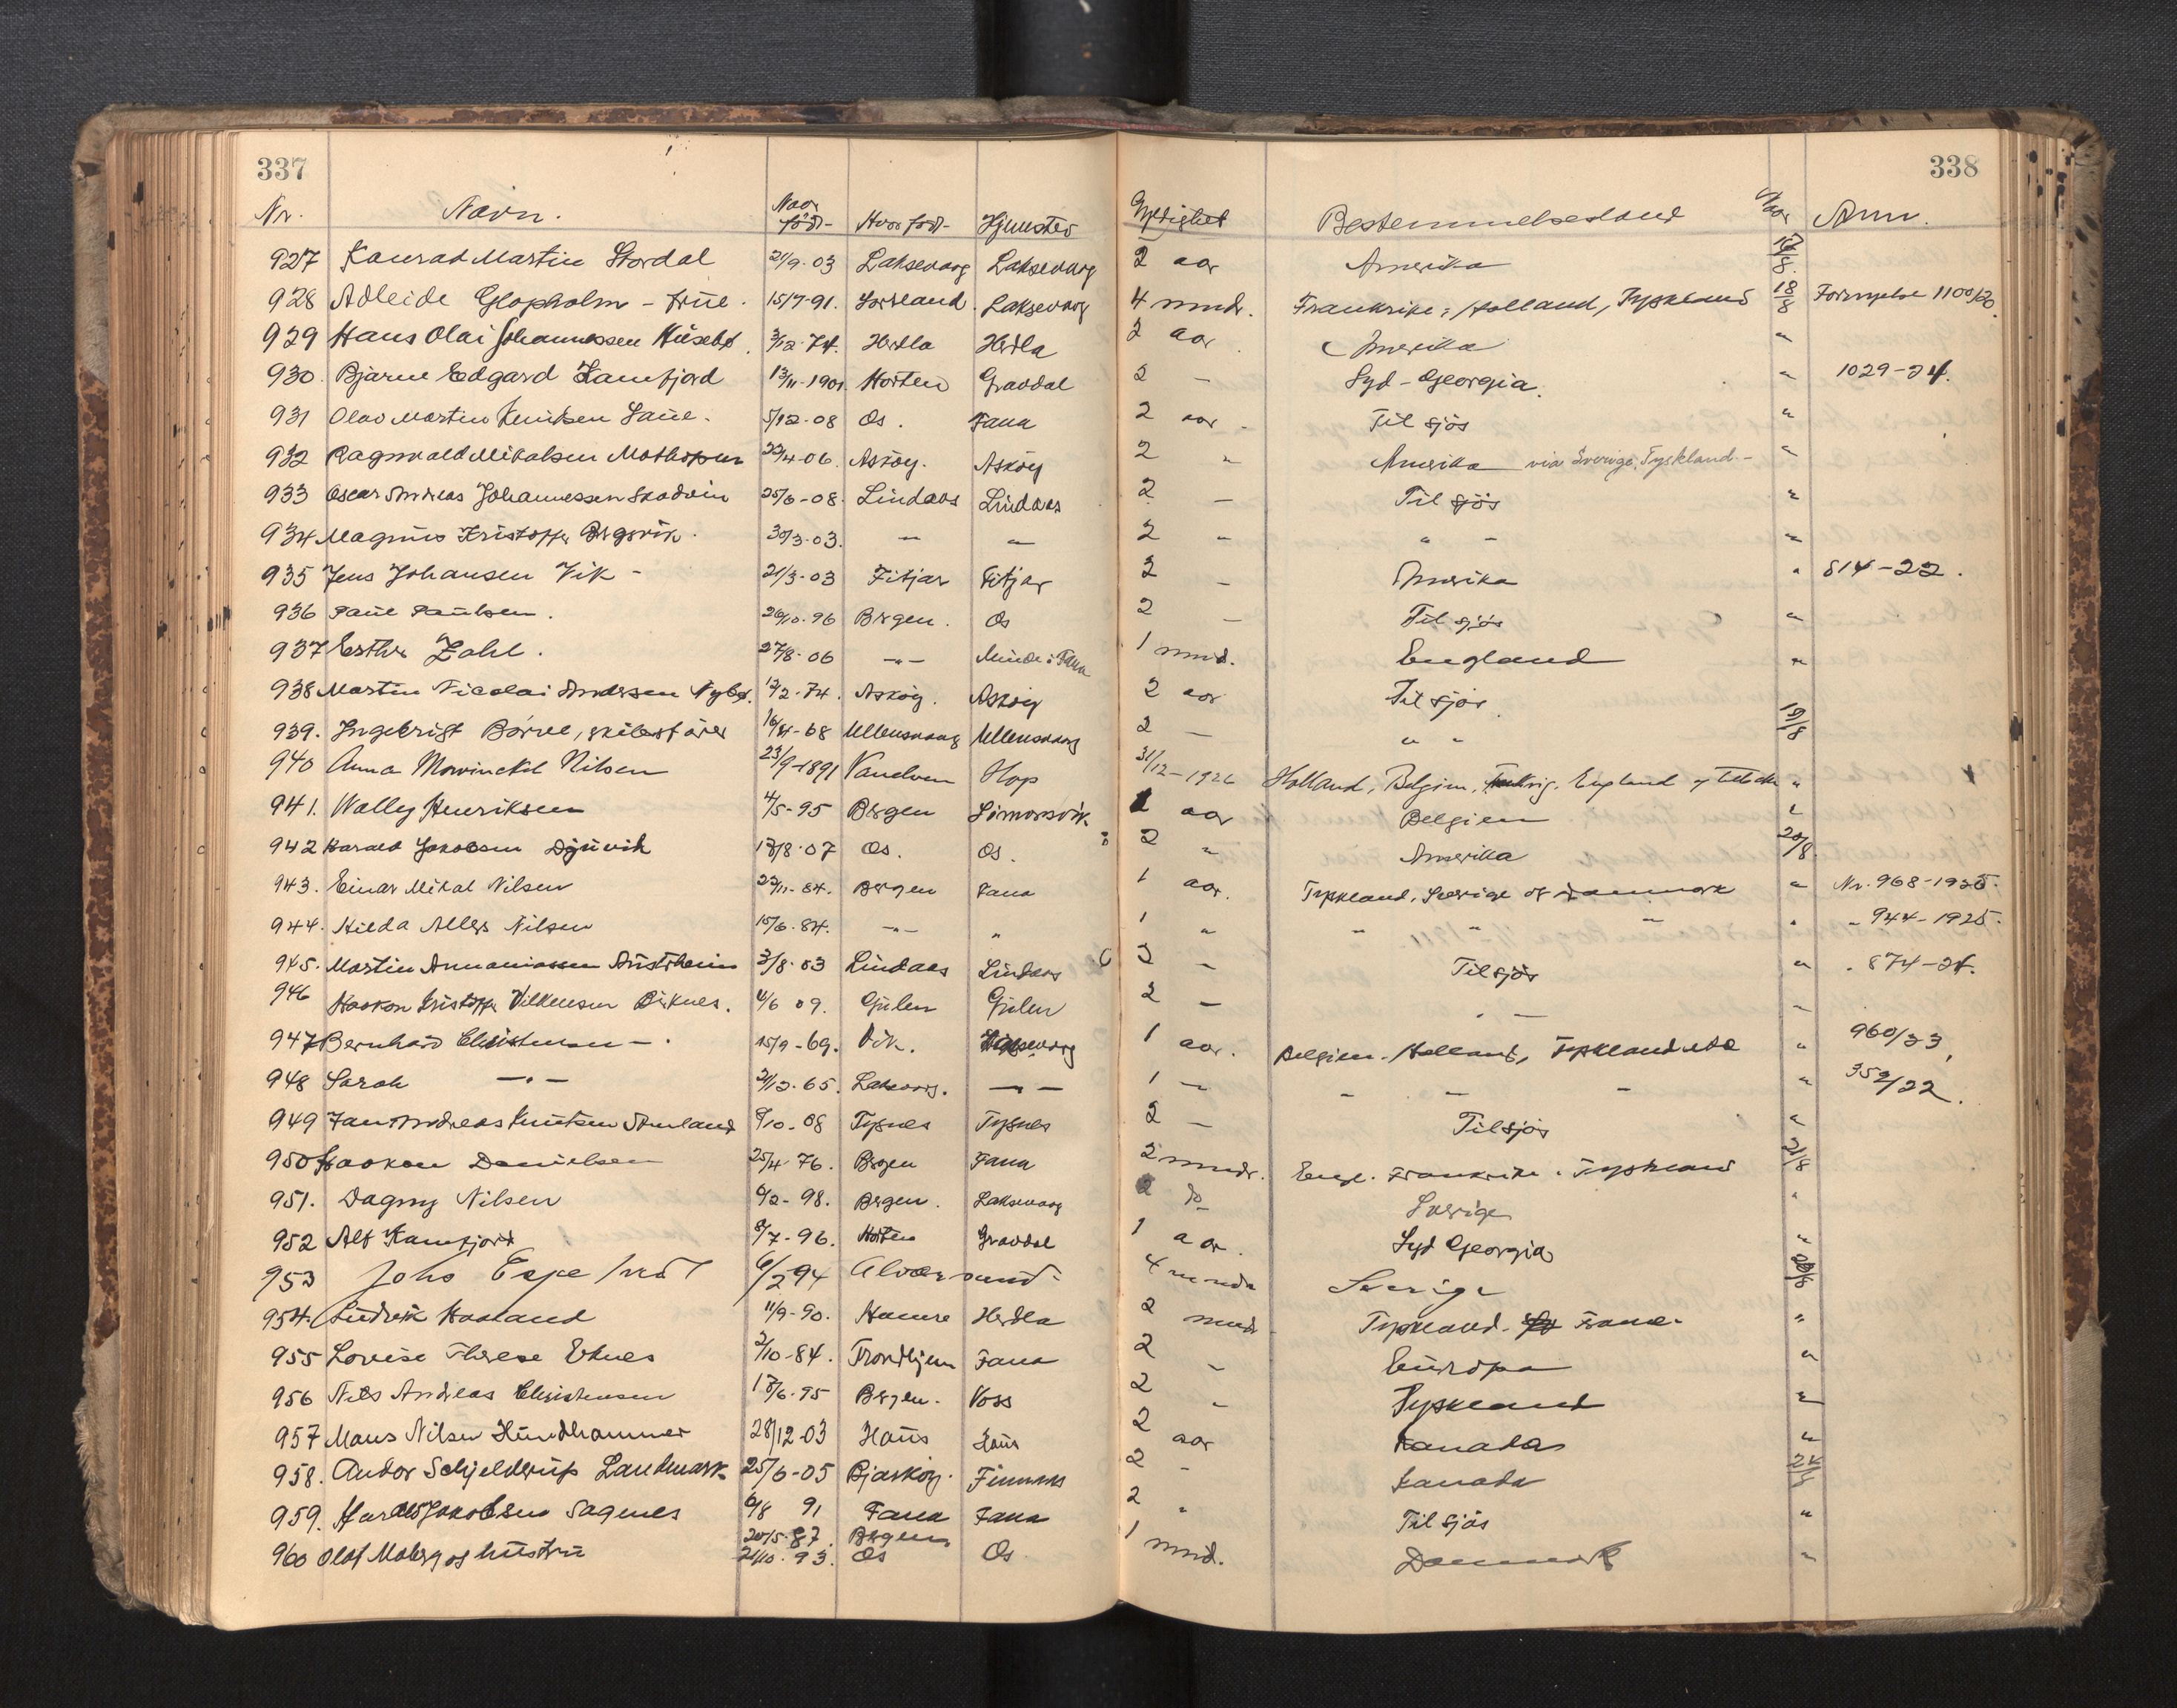 337 338
Nr. Navn. Naar född- Hvor född- Hjemsted Gyldighet Bestemmelsesland Naar Anm.
927 Konrad Martin Stordal 21/9-03 Laksevaag Laksevaag 2 aar Amerika 17/8.
928 Adleide Glopholm - frue. 15/7-91. Sortland. Laksevaag 4 mnd. Frankrike, Holland, Tyskland 18/8 Fornyelse 1100/20.
929 Hans Olai Johannessen Husebø. 3/12-74. Herdla Herdla 2 aar Amerika "
930. Bjarne Edgard Kamfjord 13/11-1901 Horten Gravdal 2 - Syd-Georgia. " 1029-24.
931 Olav Martin Knutsen Laue. 5/12-08 Os. Fana 2 aar - Til sjös "
932 Ragnvald Mikalsen Mathopen 22/4-06. Asköy. Asköy 2 " Amerika via Sverige, Tyskland - "
933 Oscar Andreas Johannessen Skodvin 25/6-08. Lindaas Lindaas 2 - Til sjös "
934 Magnus Kristoffer Bergsvik. 30/3-03. - - 2 " " - "
935 Jens Johansen Vik - 21/3-03 Fitjar Fitjar 2 - Amerika " 814-22.
936 Paul Paulsen. 26/10-96 Bergen. Os 2 - Til sjös "
937 Esther Zahl. 27/8-06 -"- Minde i Fana 1 mnd. England "
938 Martin Nicolai Andersen Nybø. 12/2-74. Asköy. Asköy 2 aar Til sjös
939. Ingebrigt Börve, skibsförer 16/4-68 Ullensvang Ullensvang 2 - " " 19/8
940 Anna Mowinckel Nilsen 23/9-1891 Vanelven Hop 31/12-1926 Holland, Belgien, Frankrig, England "
941. Wally Henriksen 4/5-95 Bergen Simonsvik. 1 aar Belgien "
942 Harald Jakobsen Djuvik 17/8-07 Os. Os. 2 " Amerika 20/8.
943. Einar Mikal Nilsen 22/11-84. Bergen Fana 1 aar. Tyskland, Sverige og Danmark " Nr. 968-1925.
944. Hilda Nilsen 15/6-84. -"- " 1 " " " " " " 944-1925.
945. Martin Annaniassen Austrheim 3/8-03 Lindaas Lindaas 2 - Til sjös " " 874-24.
946 Haakon Kristoffer Vilhelmsen Birknes. 4/6 09. Gulen Gulen 2 - " - -
947 Bernhard Christensen -. 15/9-69. Vik. Laksevaag 1 aar. Belgien, Holland, Tyskland " 960/23
948 Sarah -"- 21/12-65. Laksevaag. -"- 1 - - - - " 352/22.
949 Jan Andreas Knutsen 8/10-08 Tysnes Tysnes 2 - Til sjös "
950 Haakon Danielsen 25/4-76. Bergen Fana 2 mndr. Engl. Frankrike. Tyskland 21/8
951. Dagny Nilsen 6/2-98. Bergen. Laksevaag 2 do Sverige "
952 Alf Kamfjord 8/7-96. Horten Gravdal 1 aar. Syd Georgia "
953 Johs Espeland 6/2 94 Alversund - 4 mndr Sverige
954. Ludvik Haaland 11/9-90. Hamre Herdla 2 mndr Tyskland. "
955 Lovise Therese Eknes 2/10-84. Trondhjem Fana 2 - Europa "
956 Nils Andreas Christensen 17/6-95 Bergen. Voss 2 " Tyskland "
957 Mons Nilsen Hundhammer 28/12-03 Haus Haus 2 aar Kanada "
958. Andor Schjelderup Landmark 25/6-05 Bjarköy. Finnaas 2 - Kanada
959. Harald Jakobsen Sagnes 6/8 91 Fana Fana 2 " Til sjös "
20/5-87. Bergen.
960 Olaf Moberg og hustru 21/10-93. Os Os 1 mnd. Danmark "